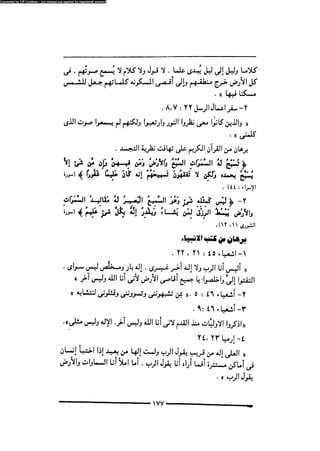 كلاما وليل إلى ليل يبدى علما . لا قول ولا كلام لا يسمع صوتهم . فى
كل الأرض خرج منطقهم وإلى أقصى المسكونة كلماتهم جعل للشمس
مسكنا فيها » .
٢ – سفر أعمال الرسل ٢٢ : ٧ ، ٨ .
« والذين كانوا معى نظروا النور وارتعبوا ولكنهم لم يسمعوا صوت الذى
كلمنى » .
برهان من القرآن الكريم على تهافت نظرية التجسد .
١ – ﴿ تسبح له السموات السبع والأرض ومن فيهن وإن من شئ إلا
يسبح بحمده ولكن لا تفقهون تسبيحهم إنه كان حليما غفورا ﴾ ( سورة
الإسراء ٤٤ ) .
٢ – ﴿ ليس كمثله شئ وهو السميع البصير له مقاليد السموات
والأرض يبسط الرزق لمن يشاء ويقدر إنه بكل شئ عليم ﴾ ( سورة
الشورى ١١ ، ١٢ ) .
برهان من كتب الأنبياء .
١ – أشعياء ٤٥ : ٢١ ، ٢٢ .
« أليس أنا الرب ولا إله آخر غيرى . إله بار ومخلص ليس سواى .
التفتوا إلىّ واخلصوا يا جميع أقاصى الأرض لأنى أنا الله وليس آخر »
٢ – أشعياء ٤٦ : ٥ « بمن تشبهوننى وتسووننى وتمثلوننى لنتشابه »
٣ – أشعياء ٤٦ : ٩
« اذكروا الأوليات منذ القدم لأنى أنا الله وليس آخر. الإله وليس مثلى»
٤ – إرميا ٢٣ ، ٢٤
« العلى إله من قريب يقول الرب ولست إلها من بعيد إذا اختبأ إنسان
فى أماكن مستترة أفما أراه أنا يقول الرب . أما أملأ أنا السماوات والأرض
يقول الرب » .
١٧٧